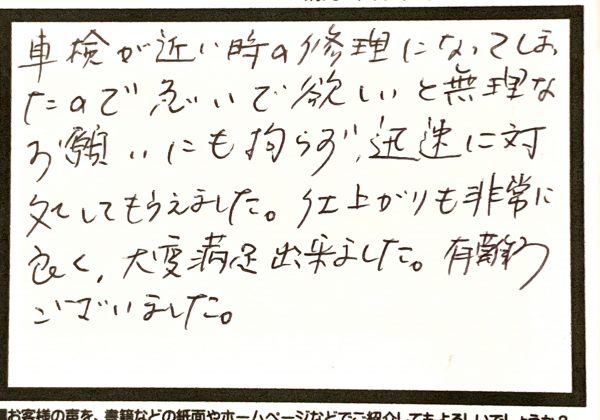 車検が近い時の修理になってしまっ
たので急いで欲しいと無理な
お願いにも拘らず、迅速に対
処してもらえました。仕上がりも非常に
良く、大変満足出来ました。有難う
ございました。
■お客様の声を、書籍などの紙面やホームページなどでご紹介してもよろしいでしょうか